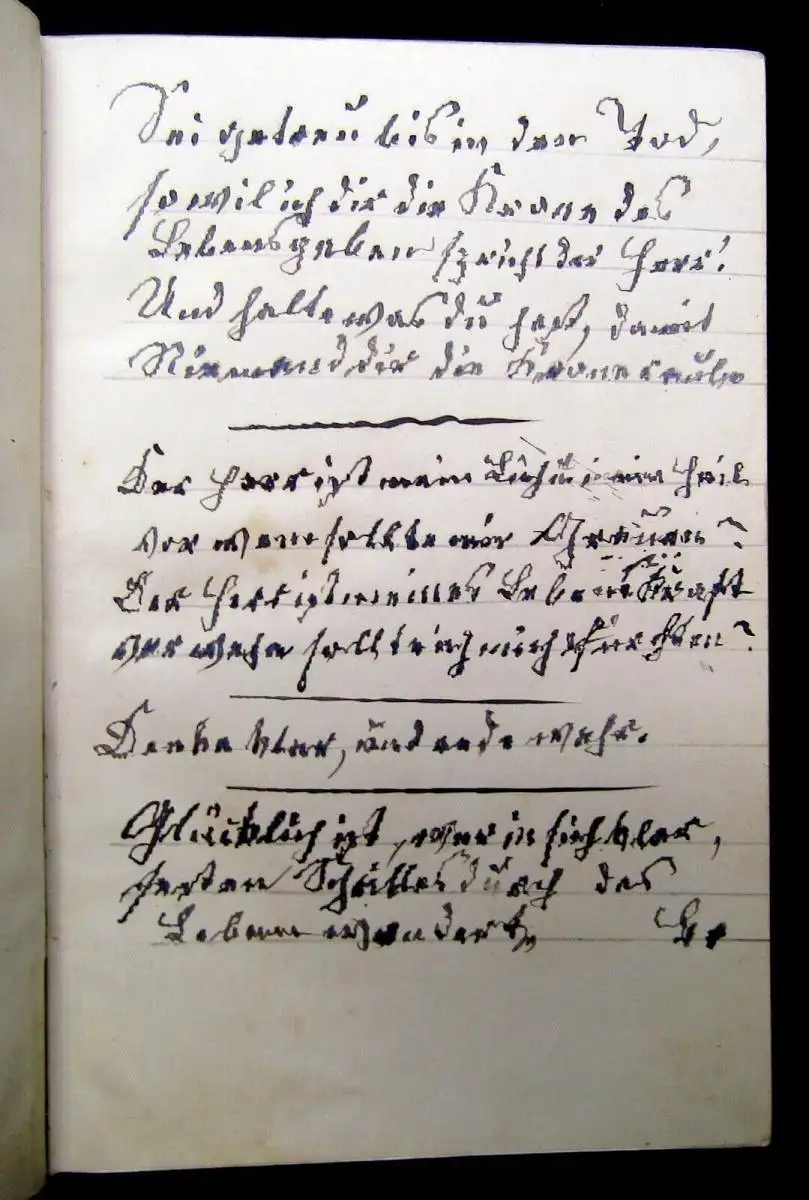 Sei getreu bis in den Tod,
so wil ich dir die Krone des
Lebens geben spricht der Herr!
Und halte was du hast, damit
Niemand dir die Krone raube
Der Herr ist mein Licht u mein Heil
vor wem sollte mir Grauen?
Der Herr ist meines Lebens Kraft
vor wehn sollte ich mich fürchten?
Denke klar, und rede wahr.
Glücklich ist, wer in sich klar,
festen Schrittes durch des
Leben wandert,